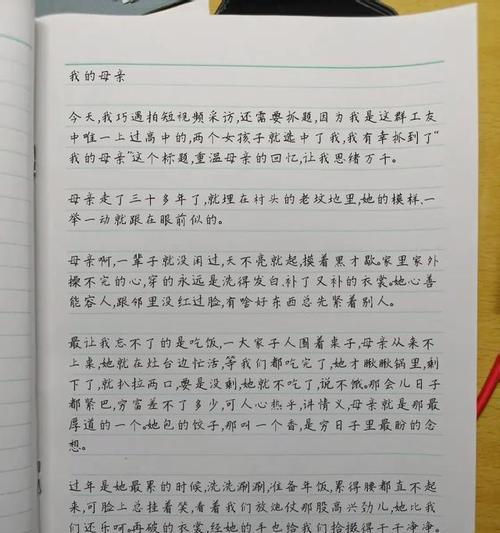 我的母亲
今天,我巧遇拍短视频采访,还需要抓题,因为我是这群工友
中唯一上过高中的,两个女孩子就选中了我,我有幸抓到了“
我的母亲”这个标题,重温母亲的回忆,让我思绪万千。
母亲走了三十多年了,就埋在村头的老坟地里,她的模样、一
举一动就跟在眼前似的。
母亲啊,一辈子就没闲过,天不亮就起,摸着黑才歇。家里家外
操不完的心,穿的永远是洗得发白、补了又补的衣裳。她心善
能容人,跟邻里没红过脸,有啥好东西总先紧着别人。
最让我忘不了的是吃饭,一大家子人围着桌子,母亲从来不
上桌,她就在灶台边忙活,等我们都吃完了,她才瞅瞅锅里,剩
下了,就扒拉两口,要是没剩,她就不吃了,说不饿。那会儿日子
都紧巴,穷富差不了多少,可人心热乎,讲情义,母亲就是那最
厚道的一个。她包的饺子,那叫一个香,是穷日子里最盼的念
想。
过年是她最累的时候,洗洗涮涮,准备年饭,累得腰都直不起
来,可脸上总挂着笑,看着我们放炮仗那股高兴劲儿,她比我
们还乐呵。再破的衣裳,经她的手也给我们拾掇得干干净净。